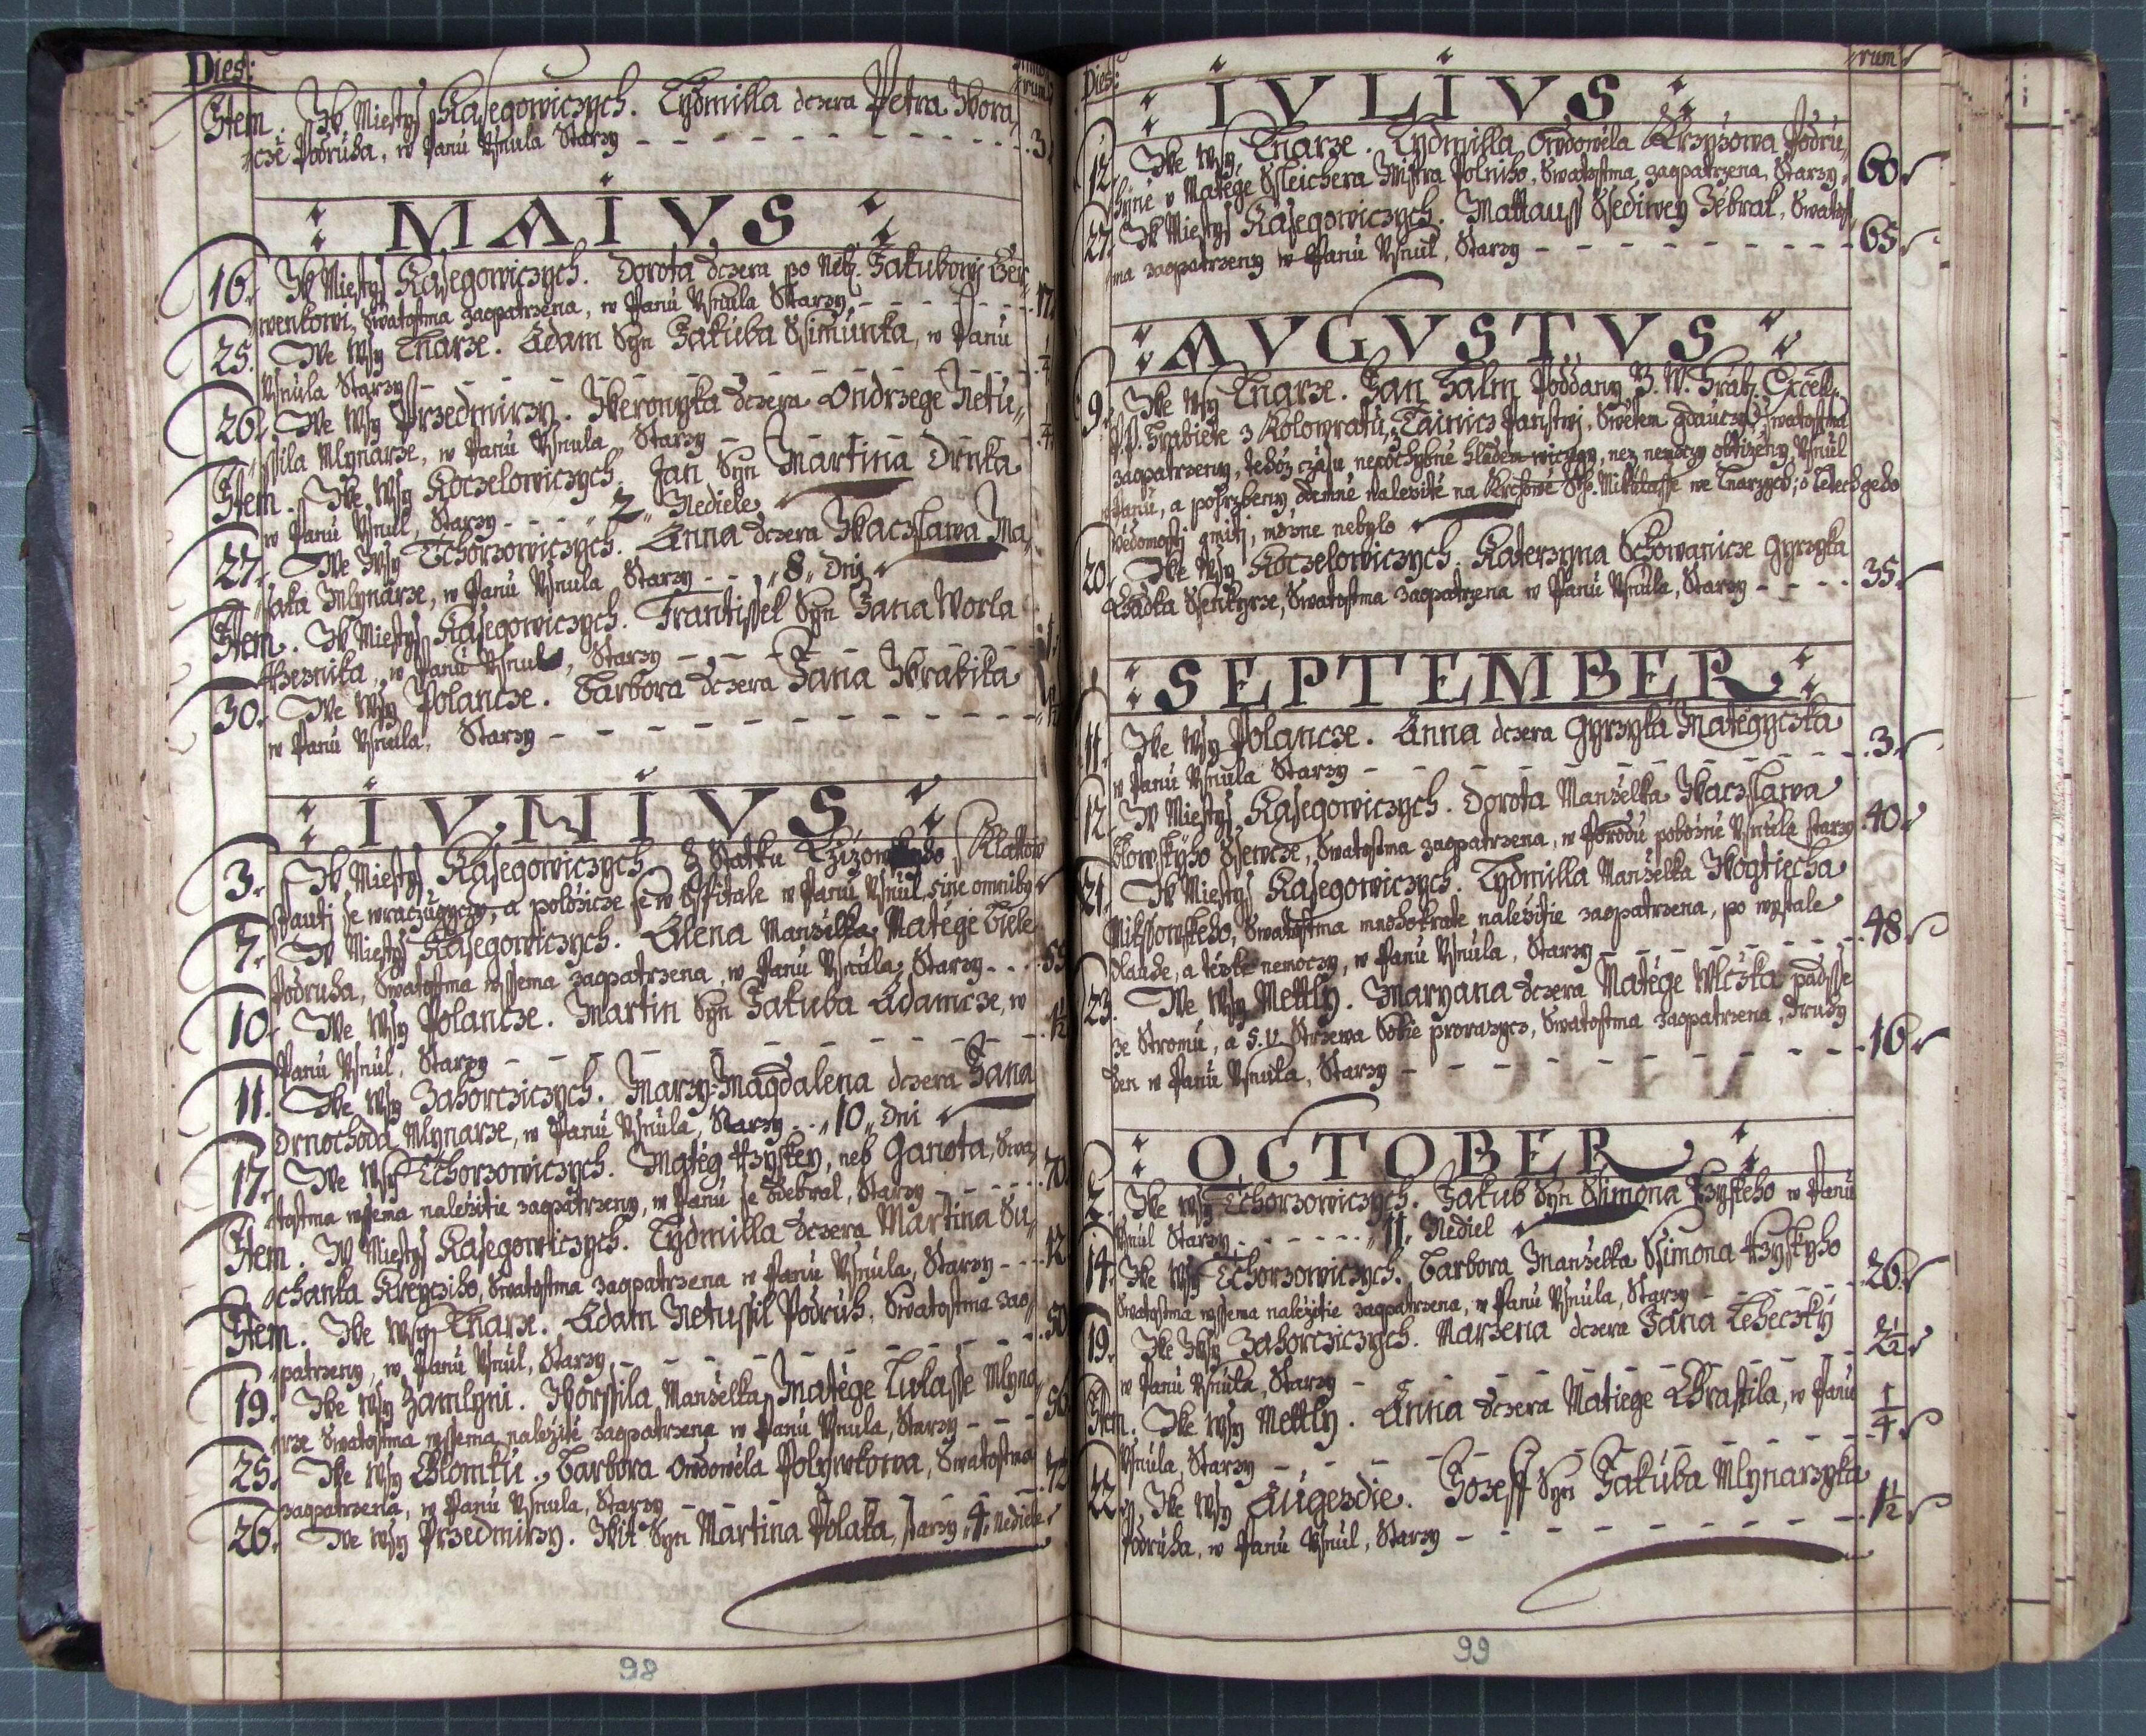 Dies:
Item. W Miesty Kasegowiczych. Lydmilla dczera Petra Wora
cze Podruha, w Panu Vsnula Starzy 3.
MAIVS
16. W Miesty Kasegowiczych. Dorota dczera po Neb. Jakubowi Čer
wenkowi, Swatostma zaopatrzena, w Panu Vsnula Starzy 17.
25. We Wsy Tnarze. Adam Syn Jakuba Ssimunka, w Panu
Vsnula Starzy
26. We Wsy Przedmirzy. Weronyka dczera Ondrzege Netu„
ssila Mlynarze, w Panu Vsnula, Starzy
Item. We Wsy Koczelowiczych. Jan Syn Martina Drnka
w Panu Vsnul, Starzy „2„ Nediele
27. We Wsy Tchorzowiczych. Anna dczera Waczslawa Ma„
saka Mlynarze, w Panu Vsnula, Starzy „8„ Dni
Item. W Miesty Kasegowiczych. Frantissek Syn Jana Worla
Rzeznika, w Panu Vsnul, Starzy 1.
30. We Wsy Polancze. Barbora dczera Jana Wrabika
w Panu Vsnula, Starzy
IVNIVS
3. W Miesty Kasegowiczych Z Statku Klattow
Pauti se wraczugyczy, a polozicze se w Sspitale w Panu Vsnul, sine omniby
7. W Miesty Kasegowiczych. Alena Manzelka Matege Biele
Podruha, Swatostma wssema zaopatrzena, w Panu Vsnula, Starzy 55
10. We Wsy Polancze. Martin Syn Jakuba Adamcze, w
Panu Vsnul, Starzy 1½
11. We Wsy Zahorcziczych. Marzy=Magdalena dczera Jana
Drnochoda Mlynarze, w Panu Vsnula, Starzy „10„ Dni
17. We Wsy Tchorzowiczych. Mateg Rzyskey, neb Ganota, Swa„
tostma wssema nalezitie zaopatrzeny, w Panu se Odebral, Starzy 70
Item. W Miesty Kasegowiczych. Lydmilla dczera Martina Su„
chanka Kregcziho, Swatostma zaopatrzena w Panu Vsnula, Starzy 12
Item. We Wsy Tnarze. Adam Netussil Podruh, Swatostma zao„
patrzeny, w Panu Vsnul, Starzy 50
19. We Wsy Zamlyni. Worssila Manzelka Matege Lukasse Mlyna„
rze Swatostma wssema nalezitė zaopatrzena w Panu Vsnula, Starzy 50
25. We Wsy Chlomku. Barbora Owdowėla Polywkowa, Swatostma
zaopatrzena, w Panu Vsnula, Starzy 72
26. We Wsy Przedmirzy. Wit Syn Martina Polaka, starzy „4„ Nediele
98
Dies:
rum
IVLIVS
12. We Wsy Tnarze. Lydmilla Owdowėla Krzyzowa Podru„
hyně v Matěge Ssleichera Mistra Polniho, Swatostma, zaopatrzena, Starzy 60
27. W Miesty Kasegowiczych. Mattauss Ssediwey Žebrak, Swatost
ma zaopatrzeny w Panu Vsnul, Starzy 65
AVGVSTVS
9. We Wsy Tnarze. Jan Jalm, Poddany J. W. Hrab: Excell:
P. P. Hrabiete z Kolowratu, Tainicz Panstwj, Swėtem gdauczy, Swatostma
zaopatrzeny, tehoz czasu nepochybnė hladem wiczegy, nez nemoczy obtizeny, Vsnul
w Panu, a pohrzbeny odemnė nalezitė na Krchowė S. Mikulasse we Tnarzych, o letech geho
wėdomostj gmiti, mozne nebylo
20. We Wsy Koczelowiczych. Katerzyna Schowanicze Gyrzyka
Hladka Ssenkyrze, Swatostma zaopatrzena w Panu Vsnula, Starzy 35.
SEPTEMBER
11. We Wsy Polancze. Anna dczera Gyrzyka Matėgyczka
w Panu Vsnula Starzy 3.
12. W Miesty Kasegowiczych. Dorota Manzelka Waczslawa
Ssewcze, Swatostma zaopatrzena, w Porodu poboznė Vsnula starzy 40
21. W Miesty Kasegowiczych. Lydmilla Manzelka Wogtiecha
Mikssowskeho, Swatostma mnohokrate nalezitie zaopatrzena, po wystale
dlauhe, a tėzke nemoczy, w Panu Vsnula, Starzy 48
23. We Wsy Mettly. Maryana dczera Matėge Wlczka padsse
ze Stromu, a s. v. Strzewa Sobie prorazycz, Swatostma zaopatrzena, Druhy
den w Panu Vsnula, Starzy 16
OCTOBER
2. We Wsy Tchorzowiczych. Jakub Syn Ssimona Rzyskeho w Panu
Vsnul Starzy „11„ Nediel
14. We Wsy Tchorzowiczych. Barbora Manzelka Ssimona Rzyskyho
Swatostma wssema nalezitie zaopatrzena, w Panu Vsnula, Starzy 26
19. We Wsy Zahorcziczych. Marzena dczera Jana Lbeczky
w Panu Vsnula, Starzy 2½
Item. We Wsy Mettly. Anna dczera Matiege Chrastila, w Panu
Vsnula, Starzy ¼
22. We Wsy Augezdie. Jozeff Syn Jakuba Mlynarzyka
Podruha, w Panu Vsnul, Starzy 1½
99